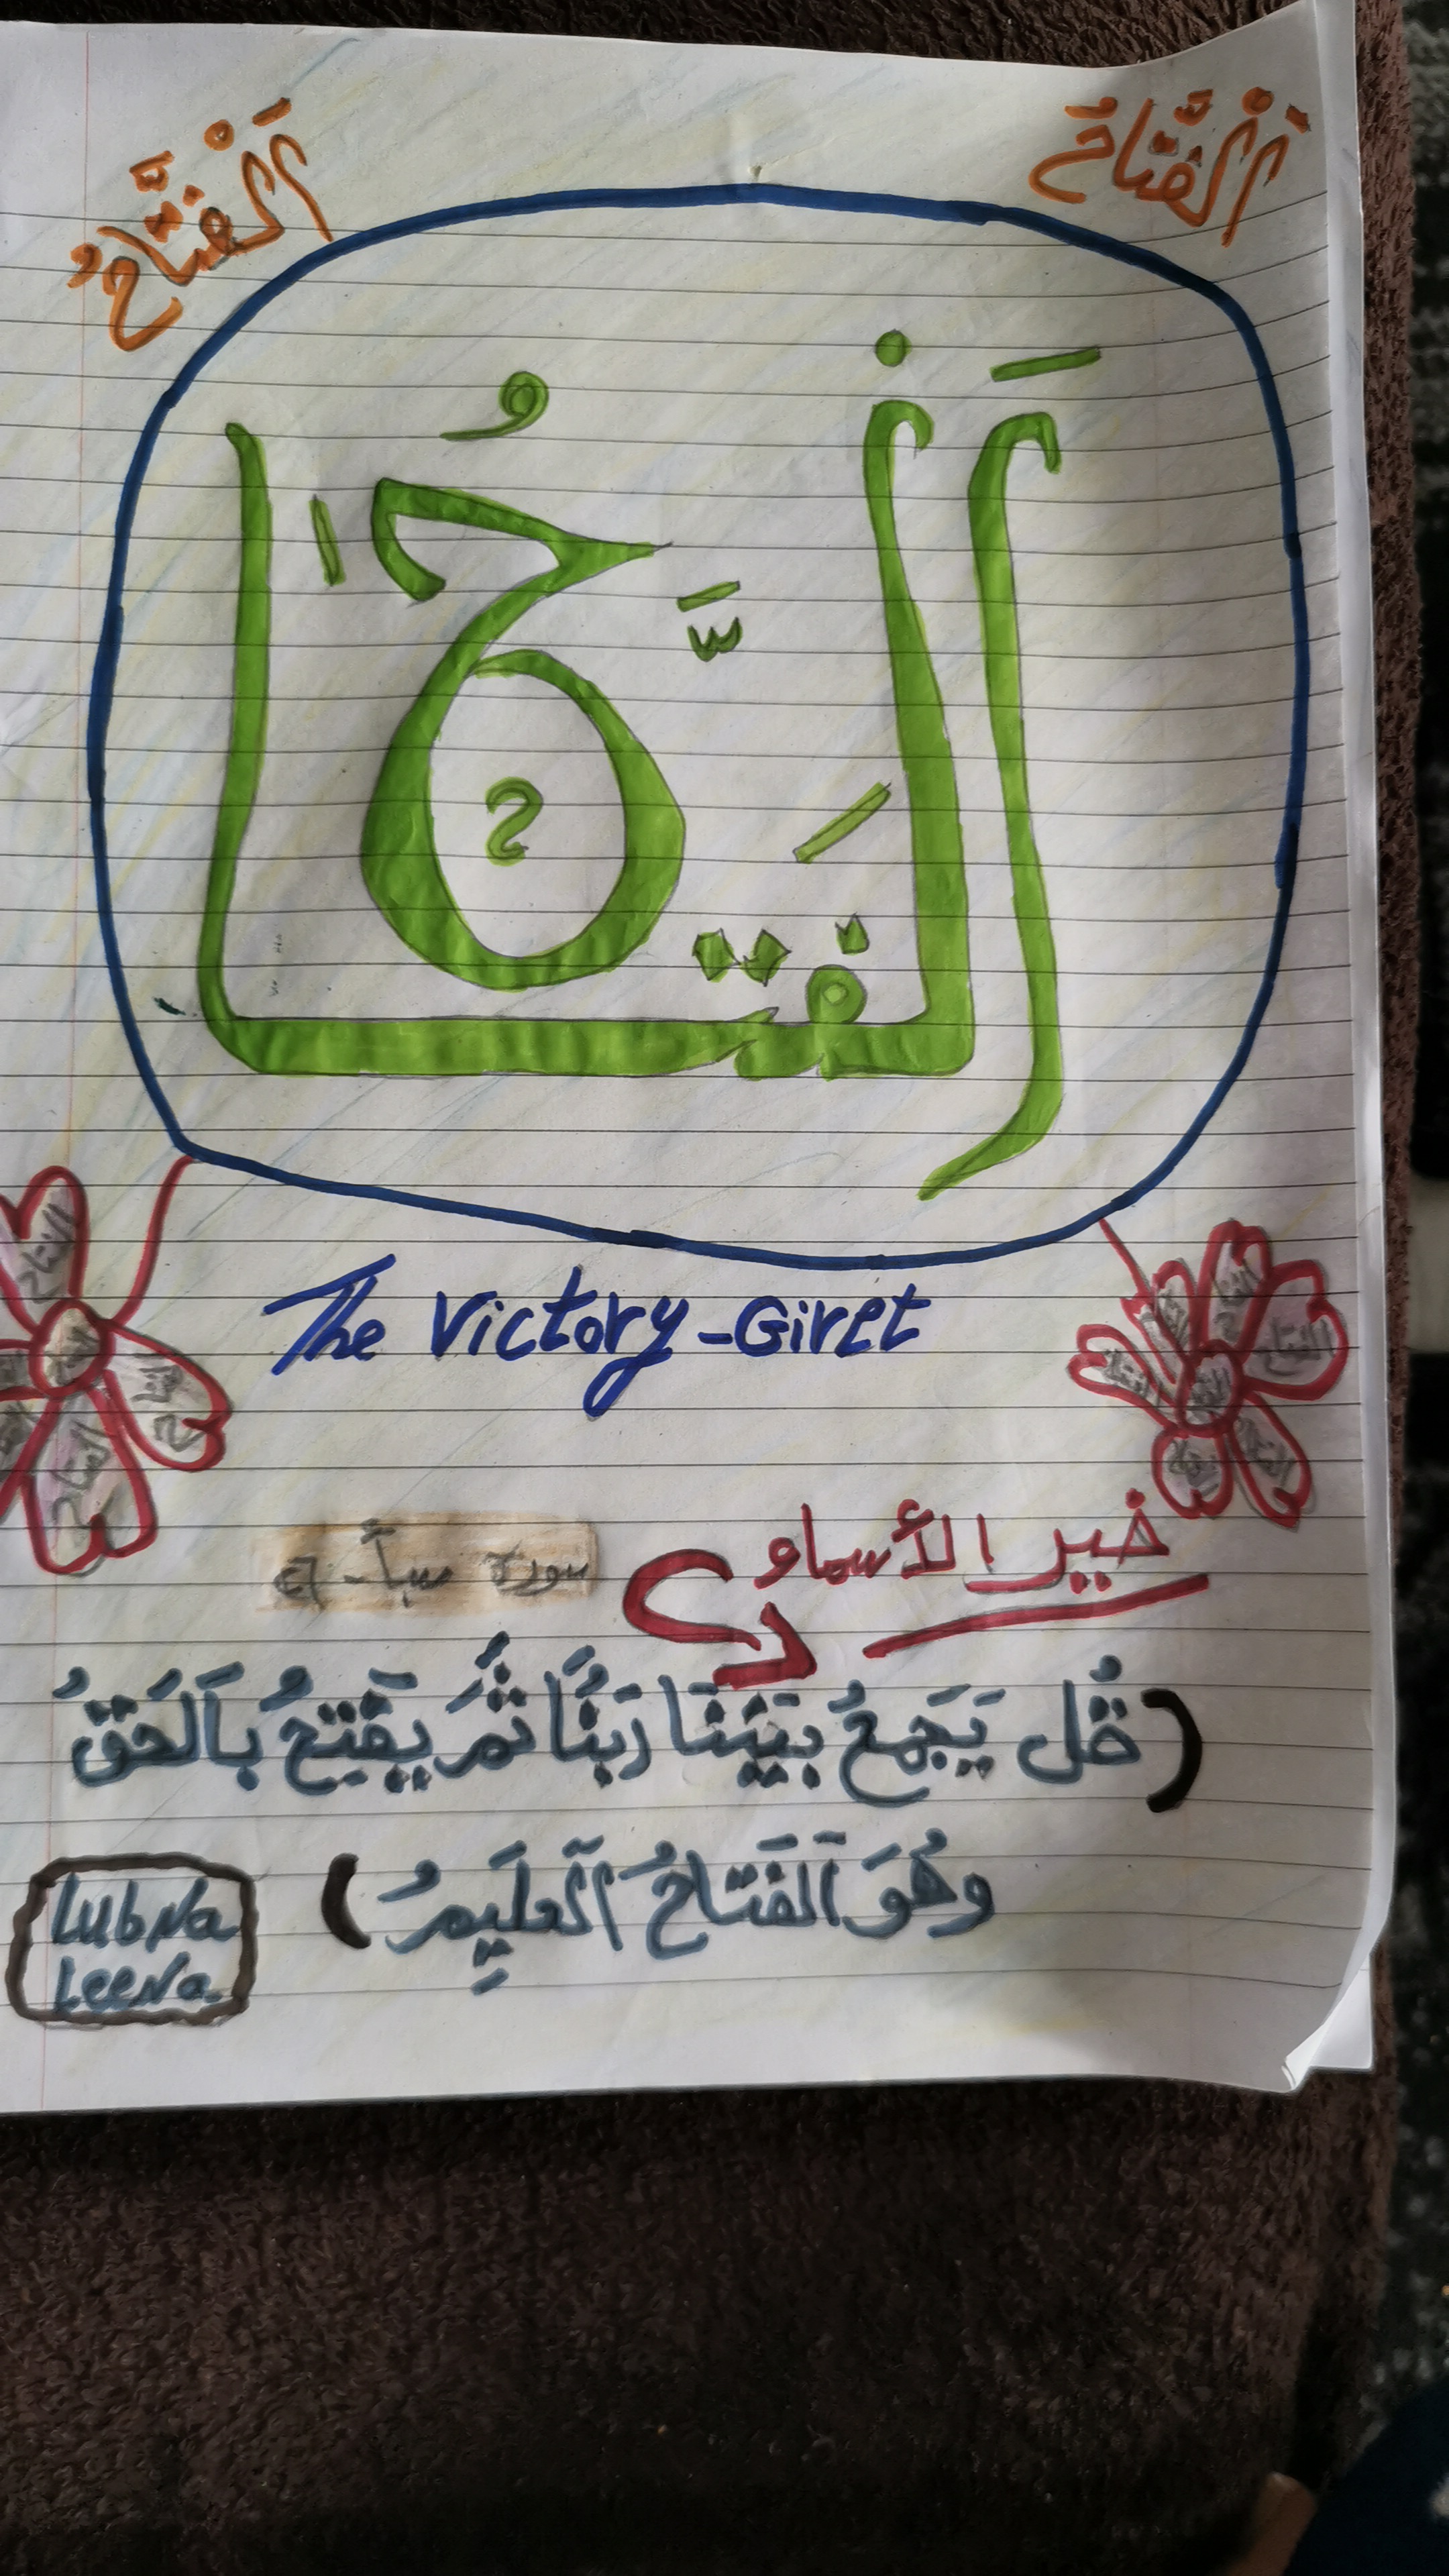 اَلْفَتَّاحُ
اَلْفَتَّاحُ
اَلْفَتَّاحُ
The Victory-Giret
خير الأسماء
سورة سبأ - ٢٦
(قُل يَجمَعُ بَيْنَنَا رَبُّنَا ثُمَّ يَفْتَحُ بِالْحَقِّ
وهُوَ الْفَتَّاحُ الْعَلِيمُ)
LubNa
LeeNa